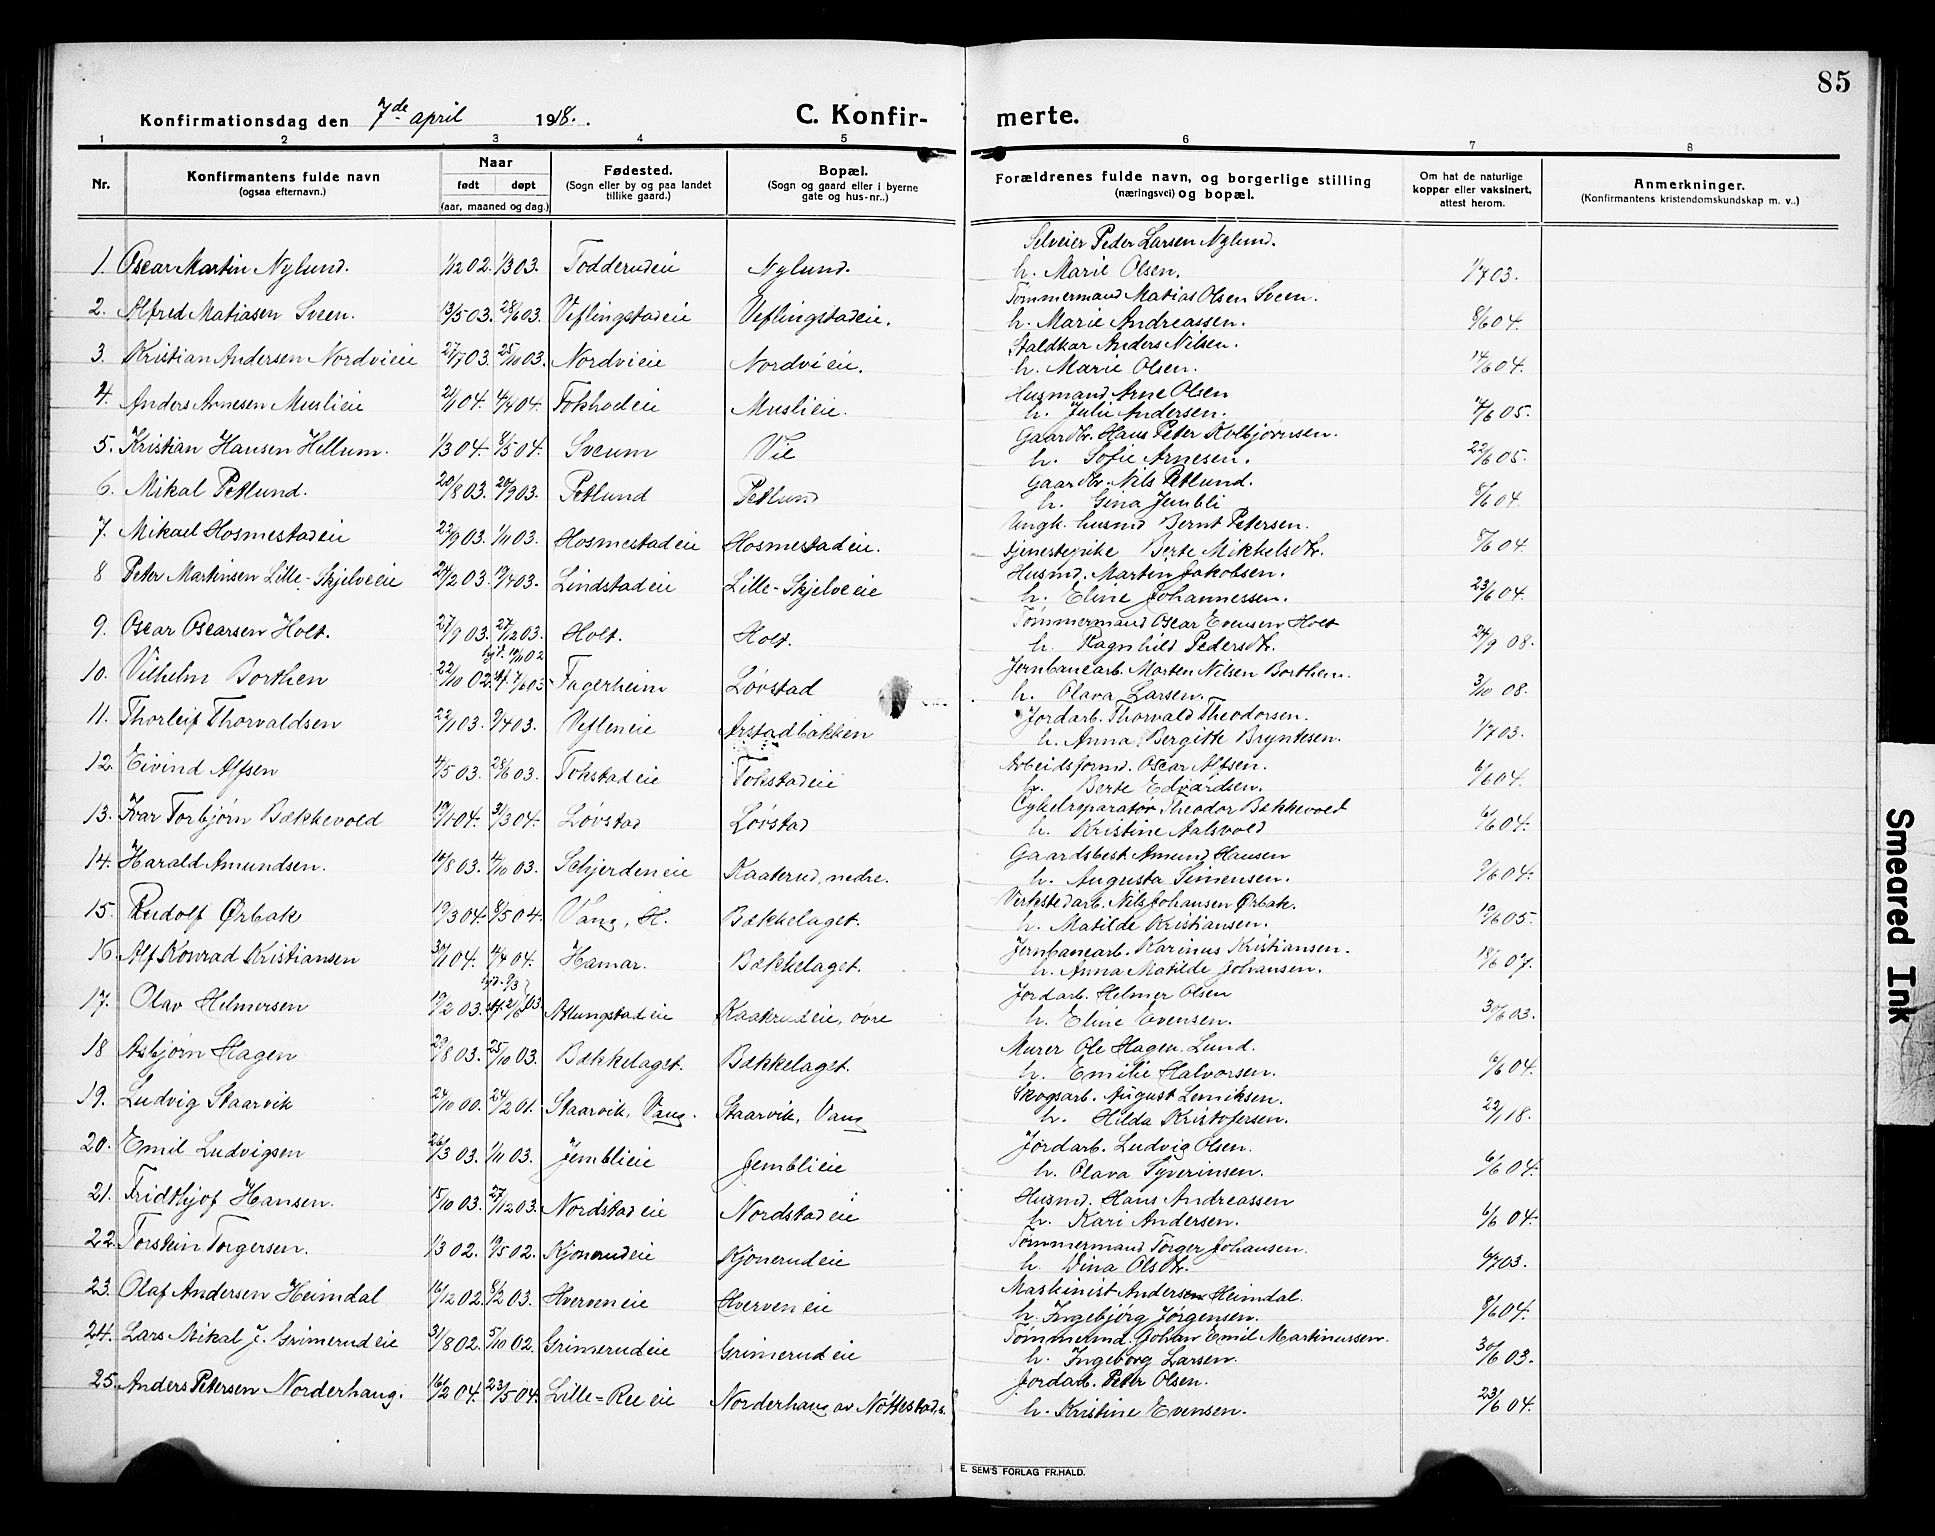 85
Konfirmationsdag den 7de april 1918.
C. Konfir-
merte.
1 2 3 4 5 6 7 8
Nr.
Konfirmantens fulde navn
(ogsaa efternavn.)
Naar
født døpt
(aar, maaned og dag.)
Fødested.
(Sogn eller by og paa landet
tillike gaard.)
Bopæl.
(Sogn og gaard eller i byerne
gate og hus-nr..)
Forældrenes fulde navn, og borgerlige stilling
(næringsvei) og bopæl.
Om hat de naturlige
kopper eller vaksinert,
attest herom.
Anmerkninger.
(Konfirmantens kristendomskundskap m. v..)
Selveier Peder Larsen Nylund.
1. Oscar Martin Nylund. 1/12 02. 1/3 03. Todderudeie Nylund. h. Marie Olsen. 1/7 03.
Tømmermand Matias Olsen Sveen.
2. Alfred Matiasen Sveen. 13/5 03. 28/6 03. Veflingstadeie Veflingstadeie. h. Marie Andreassen. 8/6 04.
Staldkar Anders Nilsen.
3. Kristian Andersen Nordvieie 27/7 03. 25/10 03. Nordvieie Nordvieie. h. Marie Olsen. 14/6 04.
Husmand Arne Olsen
4. Anders Arnesen Muslieie 2/1 04. 4/4 04. Muslieie. h. Julie Andersen. 14/6 05.
Gaardbr. Hans Peter Kolbjørnsen.
5. Kristian Hansen Hellum. 1/3 04. 8/5 04. Sveum Vie h. Sofie Arnesen. 22/6 05.
Gaardbr. Nils Petlund.
6. Mikal Petlund. 20/8 03. 20/9 03. Petlund Petlund h. Gina Jembli 8/6 04.
Ungk. husmd Bernt Petersen.
7. Mikael Hosmestadeie 22/9 03. 1/11 03. Hosmestadeie Hosmestadeie. tjenestepike Berte Mikkelsdtr. 8/6 04.
Husmd. Martin Jakobsen.
8 Peter Martinsen Lille-Skjelveeie 24/2 03. 19/4 03. Lindstadeie Lille-Skjelveeie h. Eline Johannessen. 23/6 04.
Tømmermand Oscar Evensen Holt
9. Oscar Oscarsen Holt. 27/9 03. 27/12 03. Holt. Holt. h. Ragnhild Pedersdtr. 24/9 08.
Jernbanearb. Morten Nilsen Borthen.
10. Vilhelm Borthen 22/10 02. 7/6 03 Fagerheim Løvstad h. Olava Larsen. 3/10 08.
Jordarb. Thorvald Theodorsen.
11. Thorleif Thorvaldsen 22/1 03. 9/4 03. Vefleneie Arstadbakken h. Anna Bergitte Bryntesen. 1/7 03.
Arbeidsformd. Oscar Alfsen.
12. Eivind Alfsen 4/5 03. 23/6 03. Tokstadeie Tokstadeie h. Berte Edvardsen. 6/6 04.
Cykelreparatør Theodor Bækkevold
13. Ivar Torbjørn Bækkevold 19/1 04. 31/3 04. Løvstad Løvstad h. Kristine Aalsvold 6/6 04.
Gaardsbest. Amund Hansen
14. Harald Amundsen. 14/8 03. 4/10 03. Schjerdeneie Kaaterud, nedre. h. Augusta Simensen. 9/6 04.
Verkstedarb. Nils Johansen Ørbak.
15. Rudolf Ørbak 19/3 04. 8/5 04. Vang, H. Bækkelaget. h. Matilde Kristiansen. 10/6 05.
Jernbanearb. Karinus Kristiansen.
16. Alf Konrad Kristiansen 30/1 04. 4/4 04. Hamar. Bækkelaget. h. Anna Matilde Johansen. 18/6 07.
Jordarb. Helmer Olsen
17. Olav Helmersen 19/2 03. Atlungstadeie Kaaterudeie, øvre h. Eline Evensen. 30/6 03.
Murer Ole Hagen. Lund.
18 Asbjørn Hagen 29/8 03. 25/10 03. Bækkelaget. Bækkelaget. h. Emilie Halvorsen. 6/6 04.
Skogsarb. August Lemiksen.
19. Ludvig Staarvik 24/10 00. 24/2 01. Staarvik, Vang. Staarvik, Vang h. Hilda Kristofersen. 22/1 18.
Jordarb. Ludvig Olsen.
20. Emil Ludvigsen 26/3 03. 1/11 03. Jemblieie Jemblieie h. Olava Syverinsen. 6/6 04.
Husmd. Hans Andreassen
21. Fridthjof Hansen. 15/10 03. 27/12 03. Nordstadeie Nordstadeie h. Kari Andersen. 6/6 04.
Tømmermand Torger Johansen.
22. Torstein Torgersen. 1/3 02. 19/5 02. Kjonerudeie Kjonerudeie h. Dina Olsdtr. 6/7 03.
Maskinist Andersen Heimdal.
23. Olaf Andersen Heimdal 16/12 02. 8/2 03. Hverveneie Hverveneie h. Ingebjørg Jørgensen. 8/6 04.
Tømmermd. Johan Emil Martinussen.
24. Lars Mikal J. Grimerudeie 31/8 02. 5/10 02. Grimerudeie Grimerudeie h. Ingeborg Larsen. 30/6 03.
Jordarb. Peter Olsen.
25. Anders Petersen Norderhaug. 16/2 04. 23/5 04. Lille-Reeie Norderhaug av Nøttestad, h. Kristine Evensen. 23/6 04.
E. SEM'S FORLAG FR.HALD.
Smeared Ink